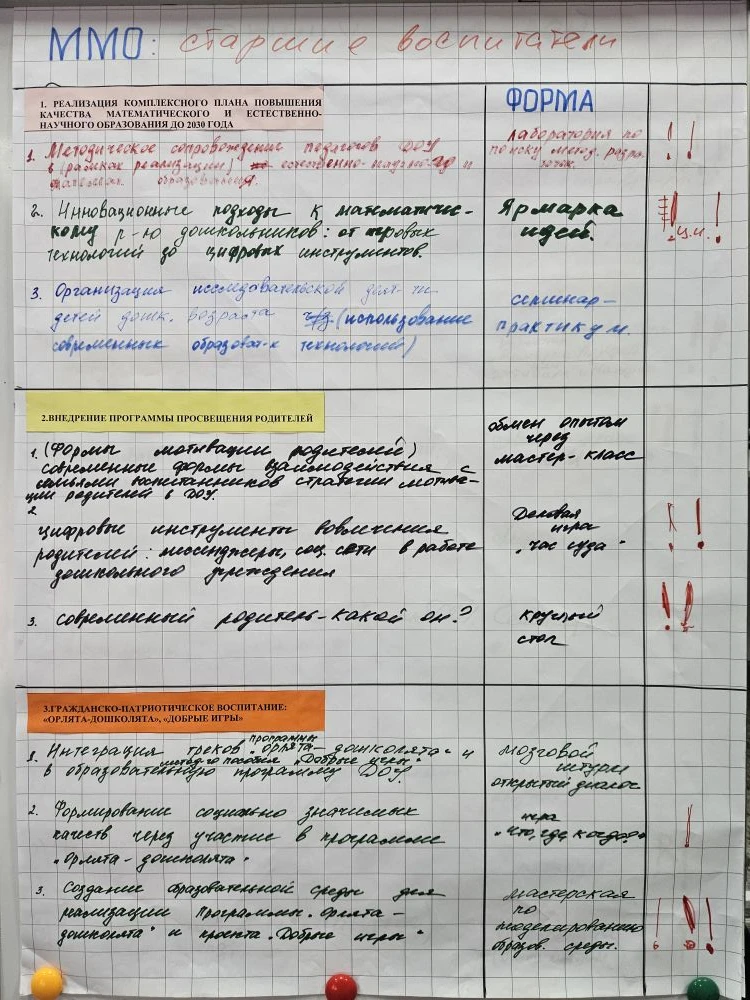 ММО: старшие воспитатели
1. РЕАЛИЗАЦИЯ КОМПЛЕКСНОГО ПЛАНА ПОВЫШЕНИЯ
КАЧЕСТВА МАТЕМАТИЧЕСКОГО И ЕСТЕСТВЕННО-
НАУЧНОГО ОБРАЗОВАНИЯ ДО 2030 ГОДА
ФОРМА
1. Методическое сопровождение педагогов ДОУ
в (рамках реализации) естественно-научного и
математ. образования.
лаборатория по
поиску метод. разра-
боток.
2. Инновационные подходы к математичес-
кому р-ю дошкольников: от игровых
технологий до цифровых инструментов.
Ярмарка
идей.
3. Организация исследовательской деят-ти
детей дошк. возраста (использование
современных образоват-х технологий)
семинар-
практикум.
2.ВНЕДРЕНИЕ ПРОГРАММЫ ПРОСВЕЩЕНИЯ РОДИТЕЛЕЙ
1. (Формы мотивации родителей)
современные формы взаимодействия с
семьями воспитанников стратегии мотива-
ции родителей в ДОУ.
обмен опытом
через
мастер-класс
2
цифровые инструменты вовлечения
родителей: мессенджеры, соц. сети в работе
дошкольного учреждения
Деловая
игра
"час суда"
3. современный родитель-какой он?
круглый
стол
3.ГРАЖДАНСКО-ПАТРИОТИЧЕСКОЕ ВОСПИТАНИЕ:
«ОРЛЯТА-ДОШКОЛЯТА», «ДОБРЫЕ ИГРЫ»
программы
1. Интеграция треков "орлята-дошколята" и
метод-го пособия "Добрые игры"
в образовательную программу ДОУ.
мозговой
штурм
открытый диалог
2. Формирование социально значимых
качеств через участие в программе
"Орлята-дошколята"
игра
"Что, где, когда?"
3. Создание образовательной среды для
реализации программы "Орлята-
дошколята" и проекта "Добрые игры"
мастерская
по
моделированию
образов. среды.